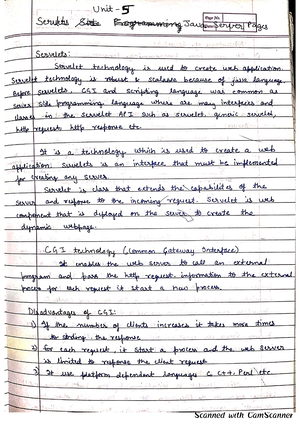 Unit - 5
Servlets Side Programming Java Server Pages
Page No.
Servlets:
Servlet technology is used to create web application.
Servlet technology is robust & scalable because of java language.
Before servlets, CGI and scripting language was common as
server side programming language where are many interfaces and
classes in the servlet API such as servlet, generic servlet,
http request, http response etc.
It is a technology which is used to create a web
application. Servlets is an interface that must be implemented
for creating any server.
Servlet is class that extends the capabilities of the
server and response to the incoming request. Servlet is web
component that is deployed on the server to create the
dynamic webpage.
CGI technology (Common Gateway Interface)
It enables the web server to call an external
program and pass the http request information to the external
process for each request it start a new process.
Disadvantages of CGI:
1) If the number of clients increases it takes more times
to the response
2) for each request, it start a process and the web server
is limited to response the client request
3) It use platform dependent language C, C++, Perl etc
Scanned with CamScanner